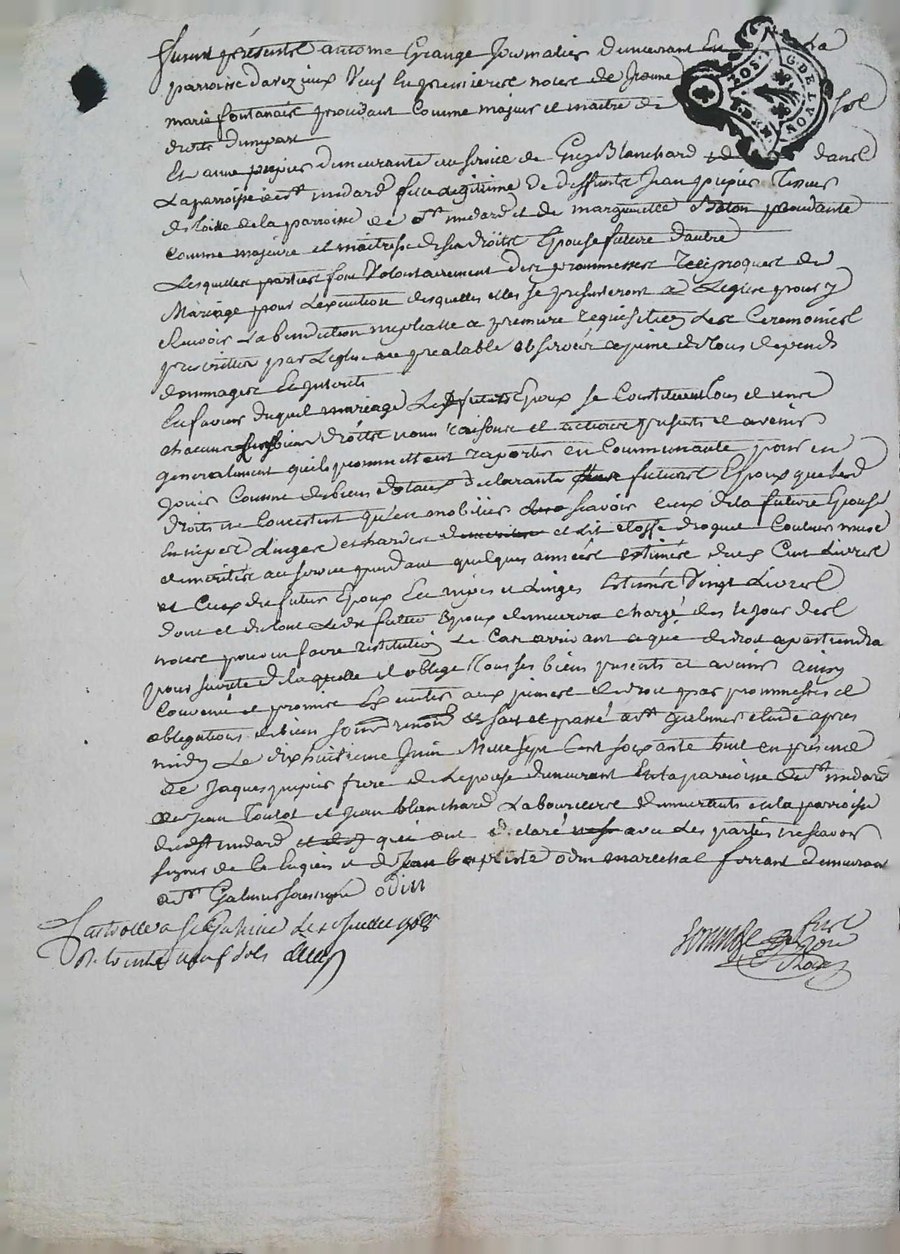 furent présents antoine Grange Journalier demeurant en la
parroisse davezieux Veuf en premieres noces de Jeanne
marie fontanais procedant comme majeur et maitre de ses
droits d'une part
Et anne pupier demeurante au service de Guy Blanchard dans
La parroisse de st medard fille légitime de deffunts Jean pupier Tissier
de toille de la parroisse de st medard et de marguerite procedante
comme majeure et maitresse de ses droits Epouse future d'autre
Lesquelles parties font Volontairement des promesses reciproques de
Mariage pour L'execution desquelles elles se presenteront a L'eglise pour y
Recevoir La benediction nuptialle a premiere requisition Les Ceremonies
prescrittes par L'eglise au prealable observées a peine de tous depends
dommages et interets
En faveur duquel mariage Les futurs Epoux se Constituent tous et uns
chacuns leurs biens droits noms raisons et actions presents et avenir
generalement qu'ils promettent raporter en Communauté pour en
Jouir comme de biens dotaux declarants futurs Epoux que leurs
droits ne Consistent qu'en mobilier scavoir ceux de la future Epouse
en nipes Linges et hardes et Lit etoffe droguet Couleur muse
et meritée au service pendant quelques années estimés deux Cent Livres
et Ceux du futur Epoux En nipes et Linges Estimés Vingt Livres
dont et du tout Ledit futur Epoux demeurera chargé des le Jour des
noces pour en faire restitution Le Cas arrivant a qui de droit apartiendra
pour sureté de laquelle il oblige tous ses biens presents et avenir ainsy
Convenu et promis Executer aux peines de droit par promesses et
obligations de biens soumis renoncé et fait et passé a st Galmier etude apres
midy Le dix huitieme Juin Mille sept Cent soixante huit en présence
de Jaques pupier frere de Lepouse demeurant En la parroisse de st medard
de Jean Toulot et Jean blanchard Laboureurs demeurants en la parroisse
dudit st medard qui ont declaré avec Les parties ne scavoir
signer de ce Enquis et de Jean baptiste odin marechal ferrant demeurant
a st Galmier soussigné odin
Controlle a st Galmier Le Juillet 1768
R. trente neuf sols
GDE LYON